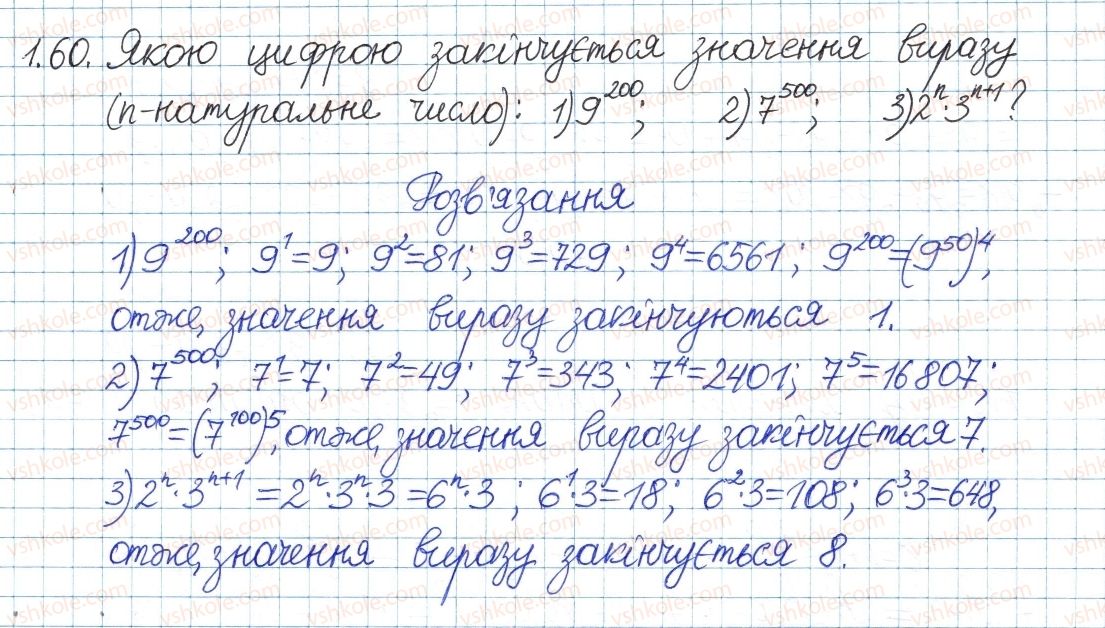 1.60. Якою цифрою закінчується значення виразу
(n-натуральне число): 1) 9²⁰⁰; 2) 7⁵⁰⁰; 3) 2ⁿ·3ⁿ⁺¹?
Розв'язання
1) 9²⁰⁰; 9¹=9; 9²=81; 9³=729; 9⁴=6561; 9²⁰⁰=(9⁵⁰)⁴,
отже, значення виразу закінчуються 1.
2) 7⁵⁰⁰; 7¹=7; 7²=49; 7³=343; 7⁴=2401; 7⁵=16807;
7⁵⁰⁰=(7¹⁰⁰)⁵, отже, значення виразу закінчується 7.
3) 2ⁿ·3ⁿ⁺¹=2ⁿ·3ⁿ·3=6ⁿ·3; 6¹·3=18; 6²·3=108; 6³·3=648,
отже, значення виразу закінчується 8.